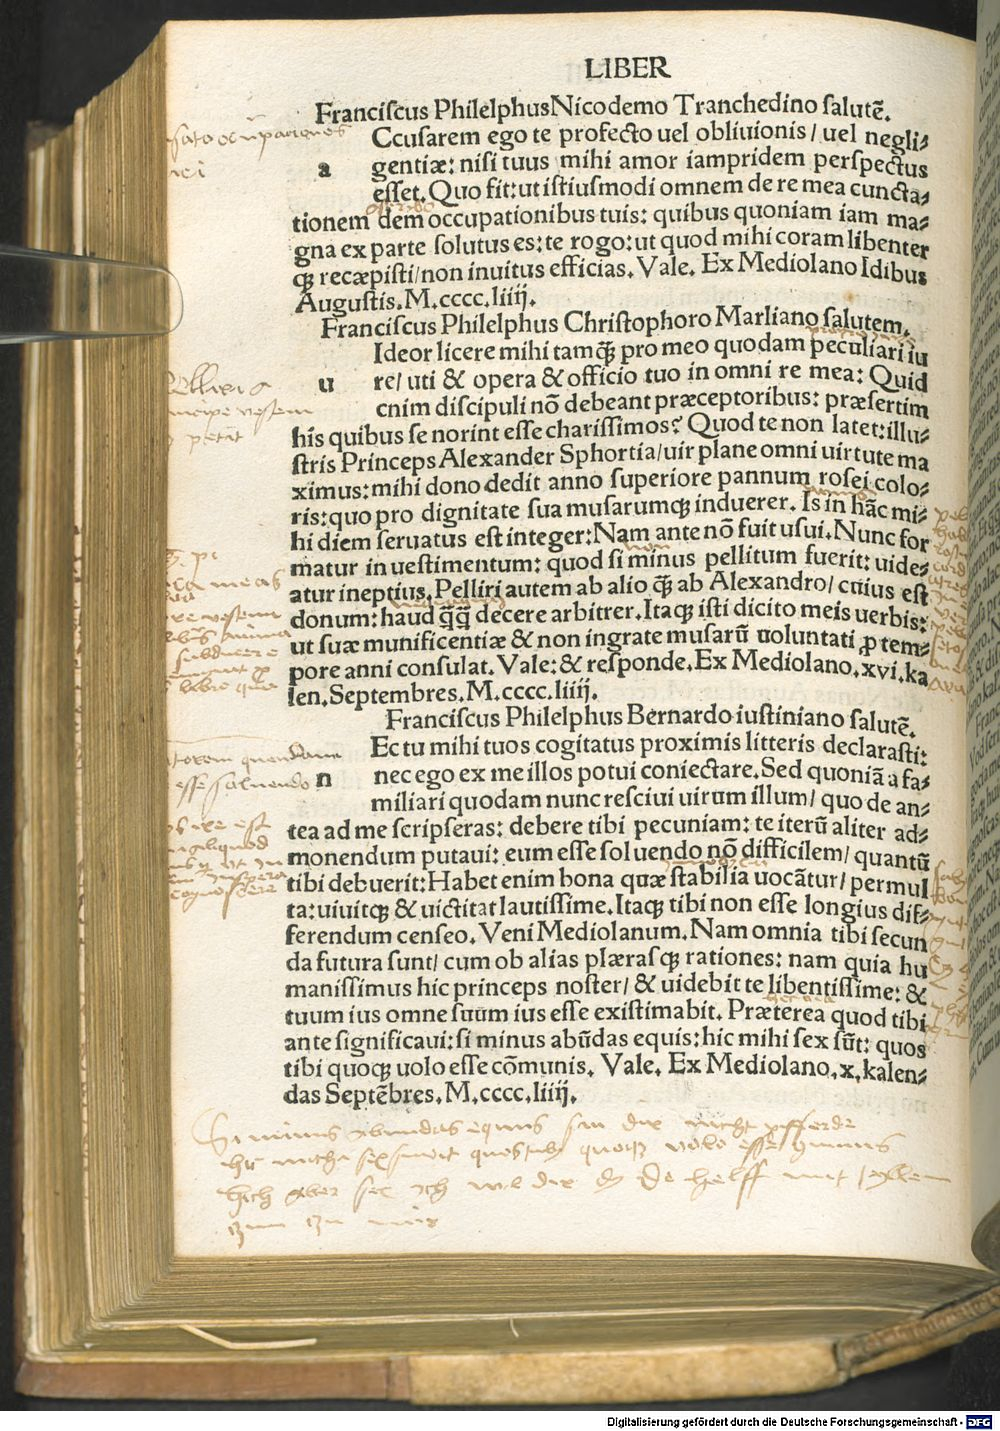 LIBER
Franciſcus Philelphus Nicodemo Tranchedino ſalutē.
Ccuſarem ego te profecto uel obliuionis/ uel negli⸗
a gentiæ: niſi tuus mihi amor iampridem perſpectus
eſſet. Quo fit: ut iſtiuſmodi omnem de re mea cuncta⸗
tionem dem occupationibus tuis: quibus quoniam iam ma⸗
gna ex parte ſolutus es: te rogo: ut quod mihi coram libenter
qꝫ recæpiſti/ non inuitus efficias. Vale. Ex Mediolano Idibus
Auguſtis. M.cccc.liiij.
Franciſcus Philelphus Chriſtophoro Marliano ſalutem.
Ideor licere mihi tamqꝫ̃ pro meo quodam peculiari iu
u re/ uti & opera & officio tuo in omni re mea: Quid
enim diſcipuli nō debeant præceptoribus: præſertim
his quibus ſe norint eſſe chariſſimos? Quod te non latet: illu⸗
ſtris Princeps Alexander Sphortia/ uir plane omni uirtute ma
ximus: mihi dono dedit anno ſuperiore pannum roſei colo⸗
ris: quo pro dignitate ſua muſarumqꝫ induerer. Is in hāc mi⸗
hi diem ſeruatus eſt integer: Nam ante nō fuit uſui. Nunc for
matur in ueſtimentum: quod ſi minus pellitum fuerit: uide⸗
atur ineptius. Pelliri autem ab alio qꝫ̃ ab Alexandro/ cuius eſt
donum: haud q̄q̄ decere arbitrer. Itaqꝫ iſti dicito meis uerbis:
ut ſuæ munificentiæ & non ingrate muſarū uoluntati ꝓ tem⸗
pore anni conſulat. Vale: & reſponde. Ex Mediolano. xvi. ka
len. Septembres. M.cccc.liiij.
Franciſcus Philelphus Bernardo iuſtiniano ſalutē.
Ec tu mihi tuos cogitatus proximis litteris declaraſti:
n nec ego ex me illos potui coniectare. Sed quoniā a fa⸗
miliari quodam nunc reſciui uirum illum/ quo de an⸗
tea ad me ſcripſeras: debere tibi pecuniam: te iterū aliter ad⸗
monendum putaui: eum eſſe ſoluendo nō difficilem/ quantū
tibi debuerit: Habet enim bona quæ ſtabilia uocātur/ permul
ta: uiuitqꝫ & uictitat lautiſſime. Itaqꝫ tibi non eſſe longius dif⸗
ferendum cenſeo. Veni Mediolanum. Nam omnia tibi ſecun
da futura ſunt/ cum ob alias plæraſqꝫ rationes: nam quia hu
maniſſimus hic princeps noſter/ & uidebit te libentiſſime: &
tuum ius omne ſuum ius eſſe exiſtimabit. Præterea quod tibi
ante ſignificaui: ſi minus abūdas equis: hic mihi ſex ſūt: quos
tibi quoqꝫ uolo eſſe cōmunis. Vale. Ex Mediolano. x. kalen⸗
das Septēbres. M.cccc.liiij.
Si minus abundas equis
Digitalisierung gefördert durch die Deutsche Forschungsgemeinschaft - DFG